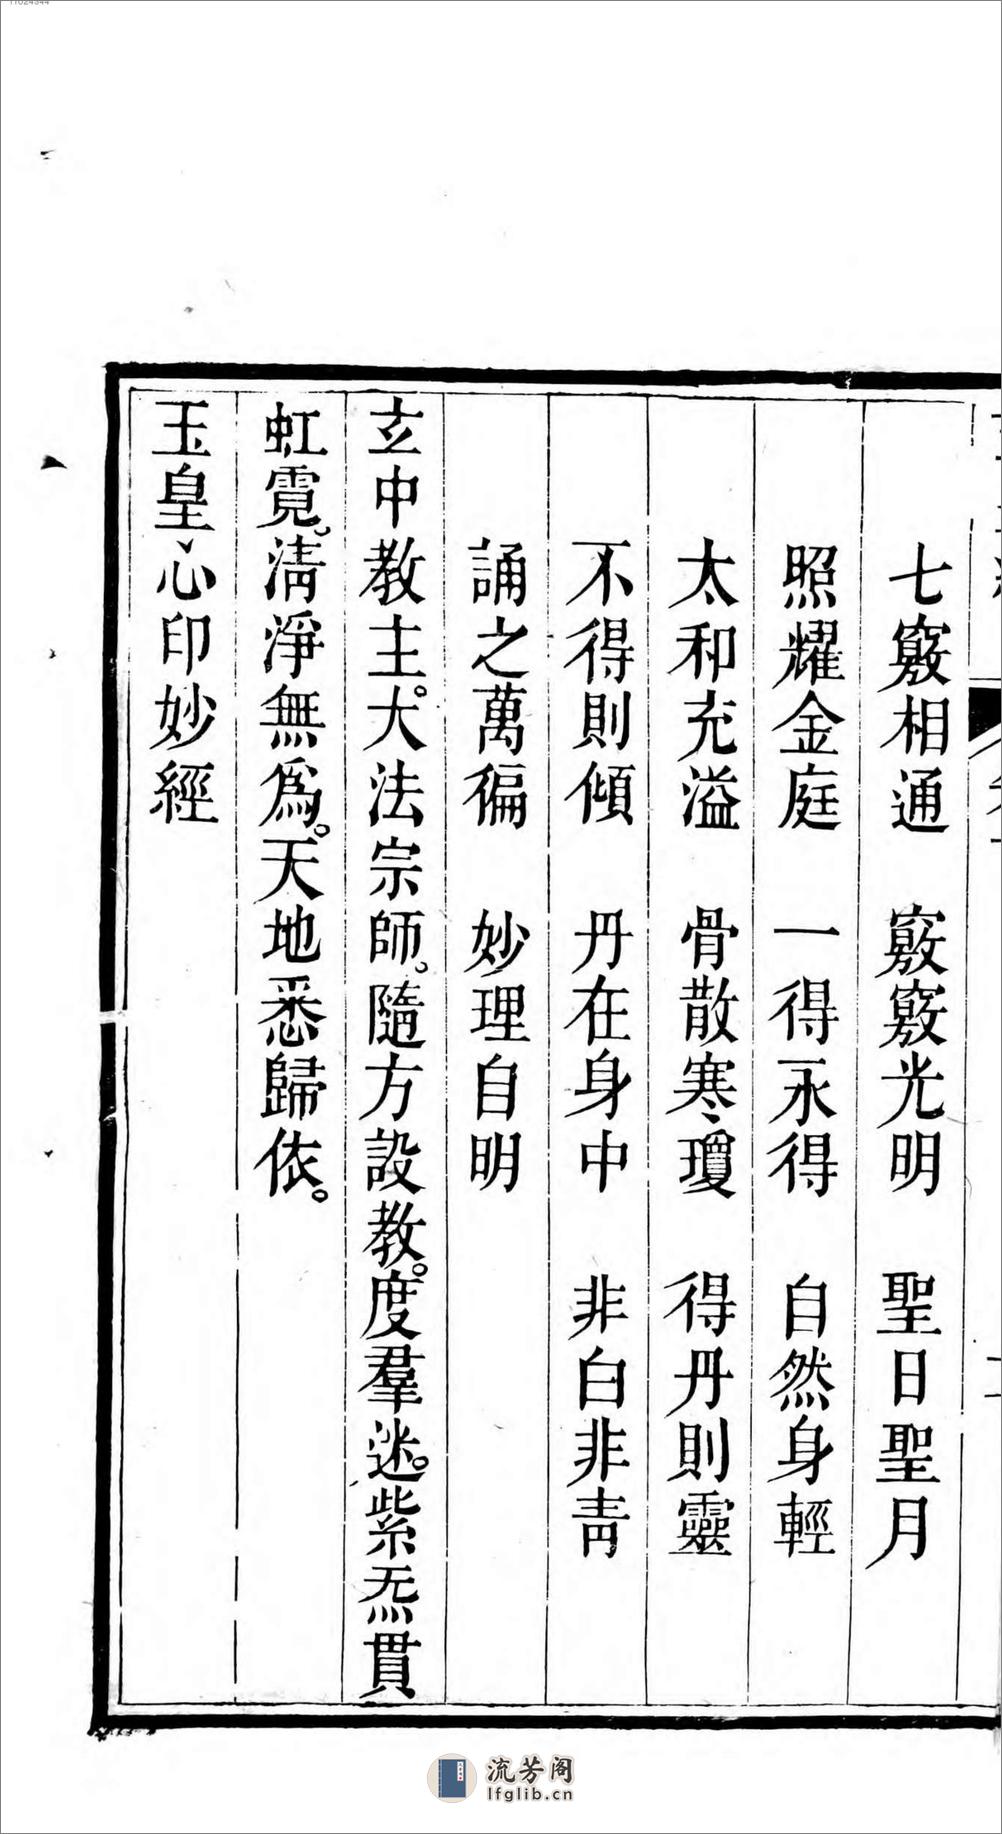 七竅相通　竅竅光明　聖日聖月
照耀金庭　一得永得　自然身輕
太和充溢　骨散寒瓊　得丹則靈
不得則傾　丹在身中　非白非青
誦之萬徧　妙理自明
玄中教主。大法宗師。隨方設教。度羣迷。紫炁貫
虹霓。清淨無爲。天地悉歸依。
玉皇心印妙經
流芳阁
lfglib.cn
11024344